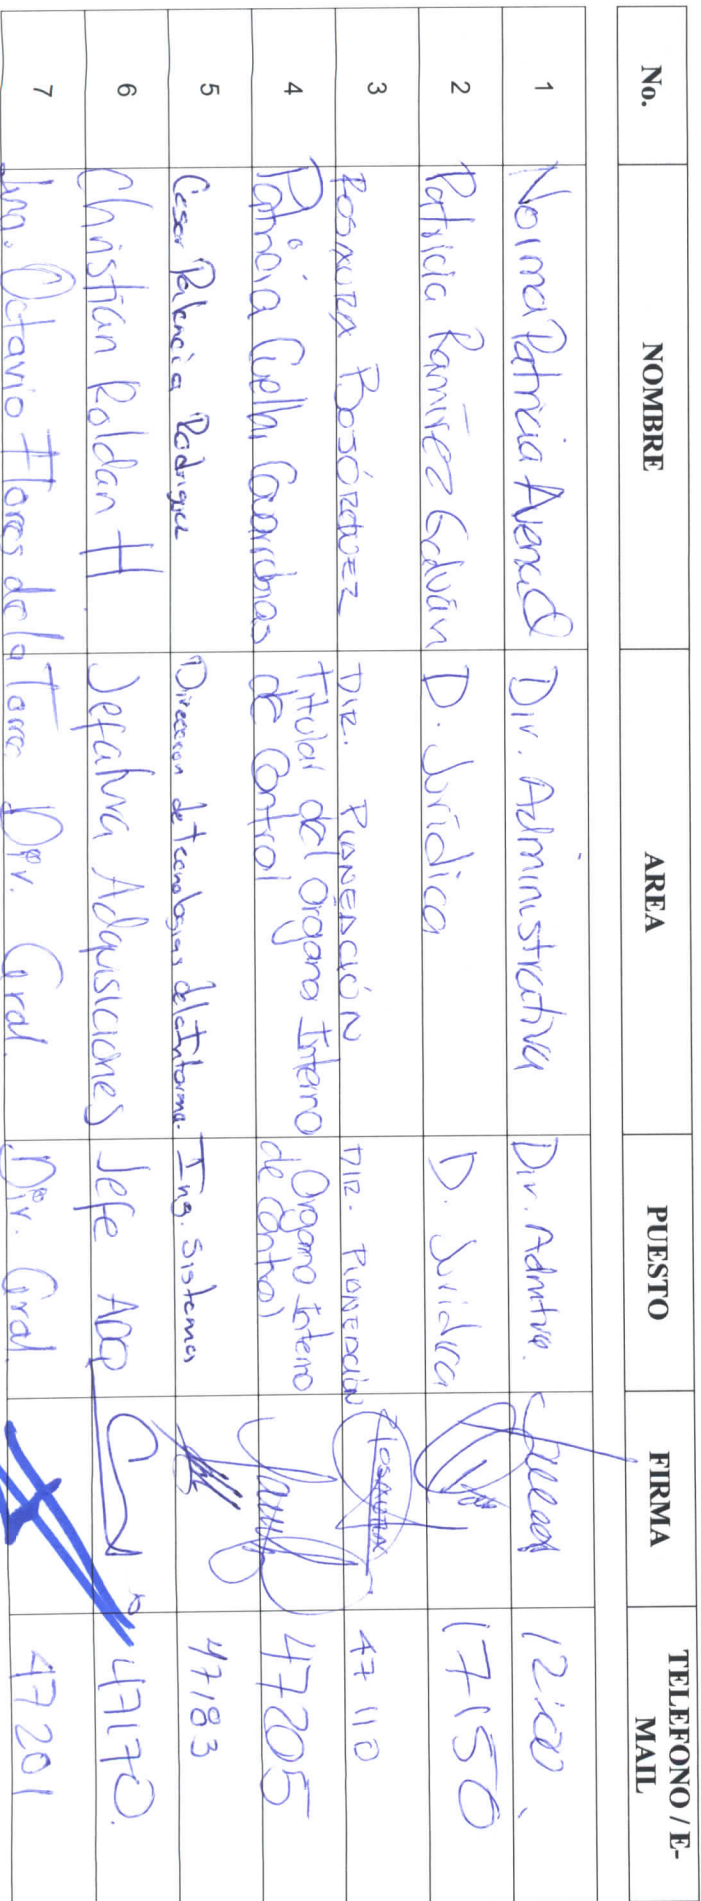 No. NOMBRE AREA PUESTO FIRMA TELEFONO / E-MAIL
1 Norma Patricia Dir. Administrativa Dir. Admtva. 12:00.
2 Patricia Ramírez Galván D. Jurídica D. Jurídica 17150
3 ROSAURA BOJÓRQUEZ DIR. PLANEACIÓN DIR. PLANEACIÓN ROSAURA 47 110
4 Patricia Covarrubias Titular del Organo Interno de Control Organo Interno de Control 47205
5 Cesar Palencia Rodriguez Direccion de tecnologias de la Informa. Ing. Sistemas 47183
6 Christian Roldan H Jefatura Adquisiciones Jefe ADQ 47170.
7 Octavio Flores de la Torre Dir. Gral. Dir. Gral. 47201